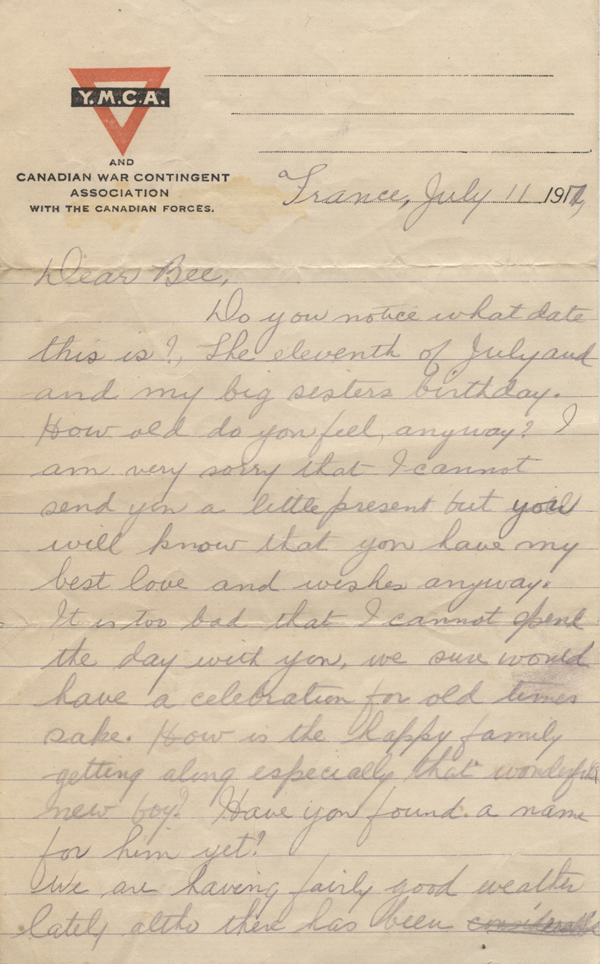 Y.M.C.A.
AND
CANADIAN WAR CONTINGENT
ASSOCIATION
WITH THE CANADIAN FORCES.
France, July 11 1917
Dear Bee,
Do you notice what date
this is?, The eleventh of July and
and my big sisters birthday.
How old do you feel, anyway? I
am very sorry that I cannot
send you a little present but you
will know that you have my
best love and wishes anyway.
It is too bad that I cannot spend
the day with you, we sure would
have a celebration for old times
sake. How is the happy family
getting along especially that wonderful
new boy? Have you found a name
for him yet?
We are having fairly good weather
lately altho there has been